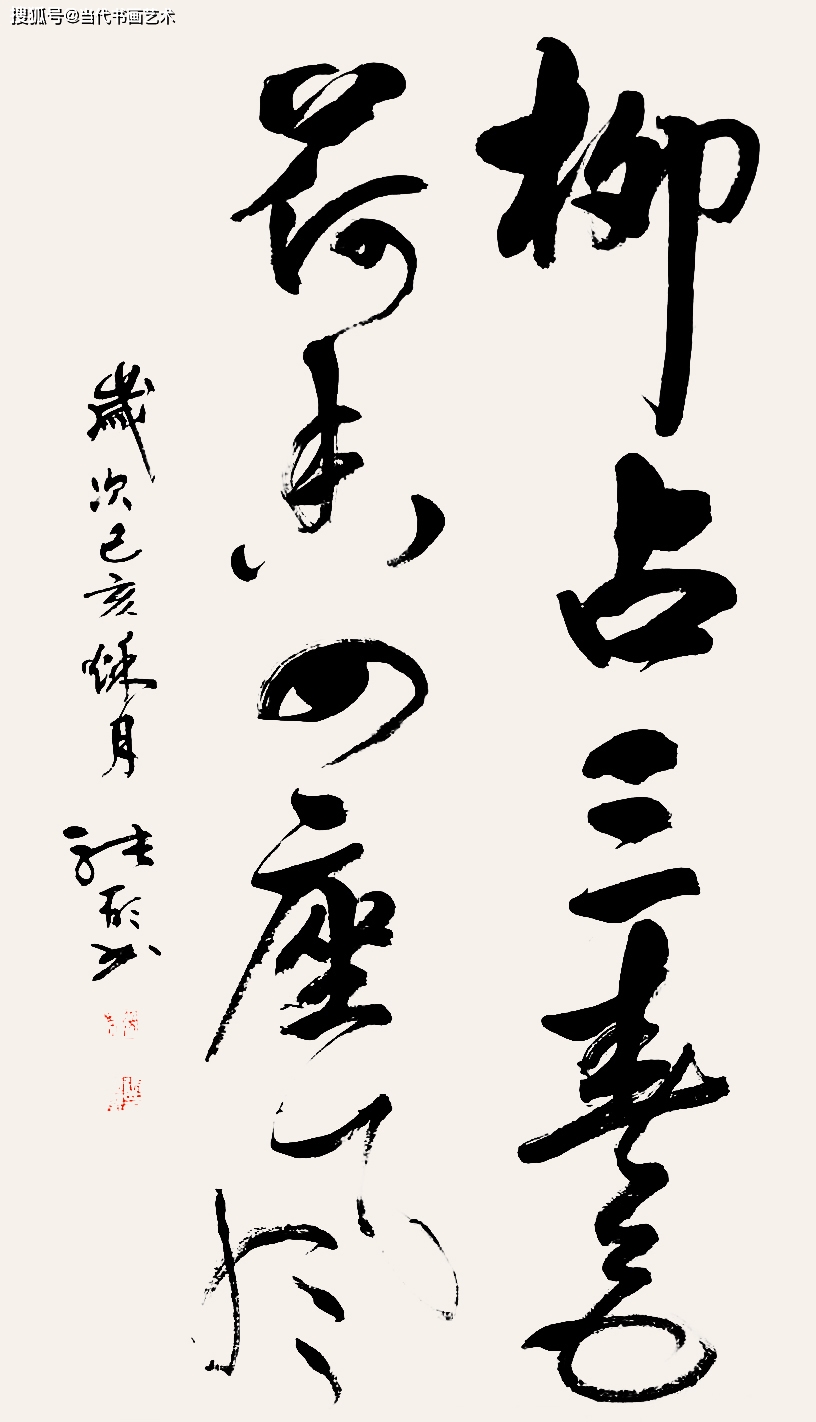 搜狐号@当代书画艺术
柳占三春色
荷香四座风
歲次己亥秌月